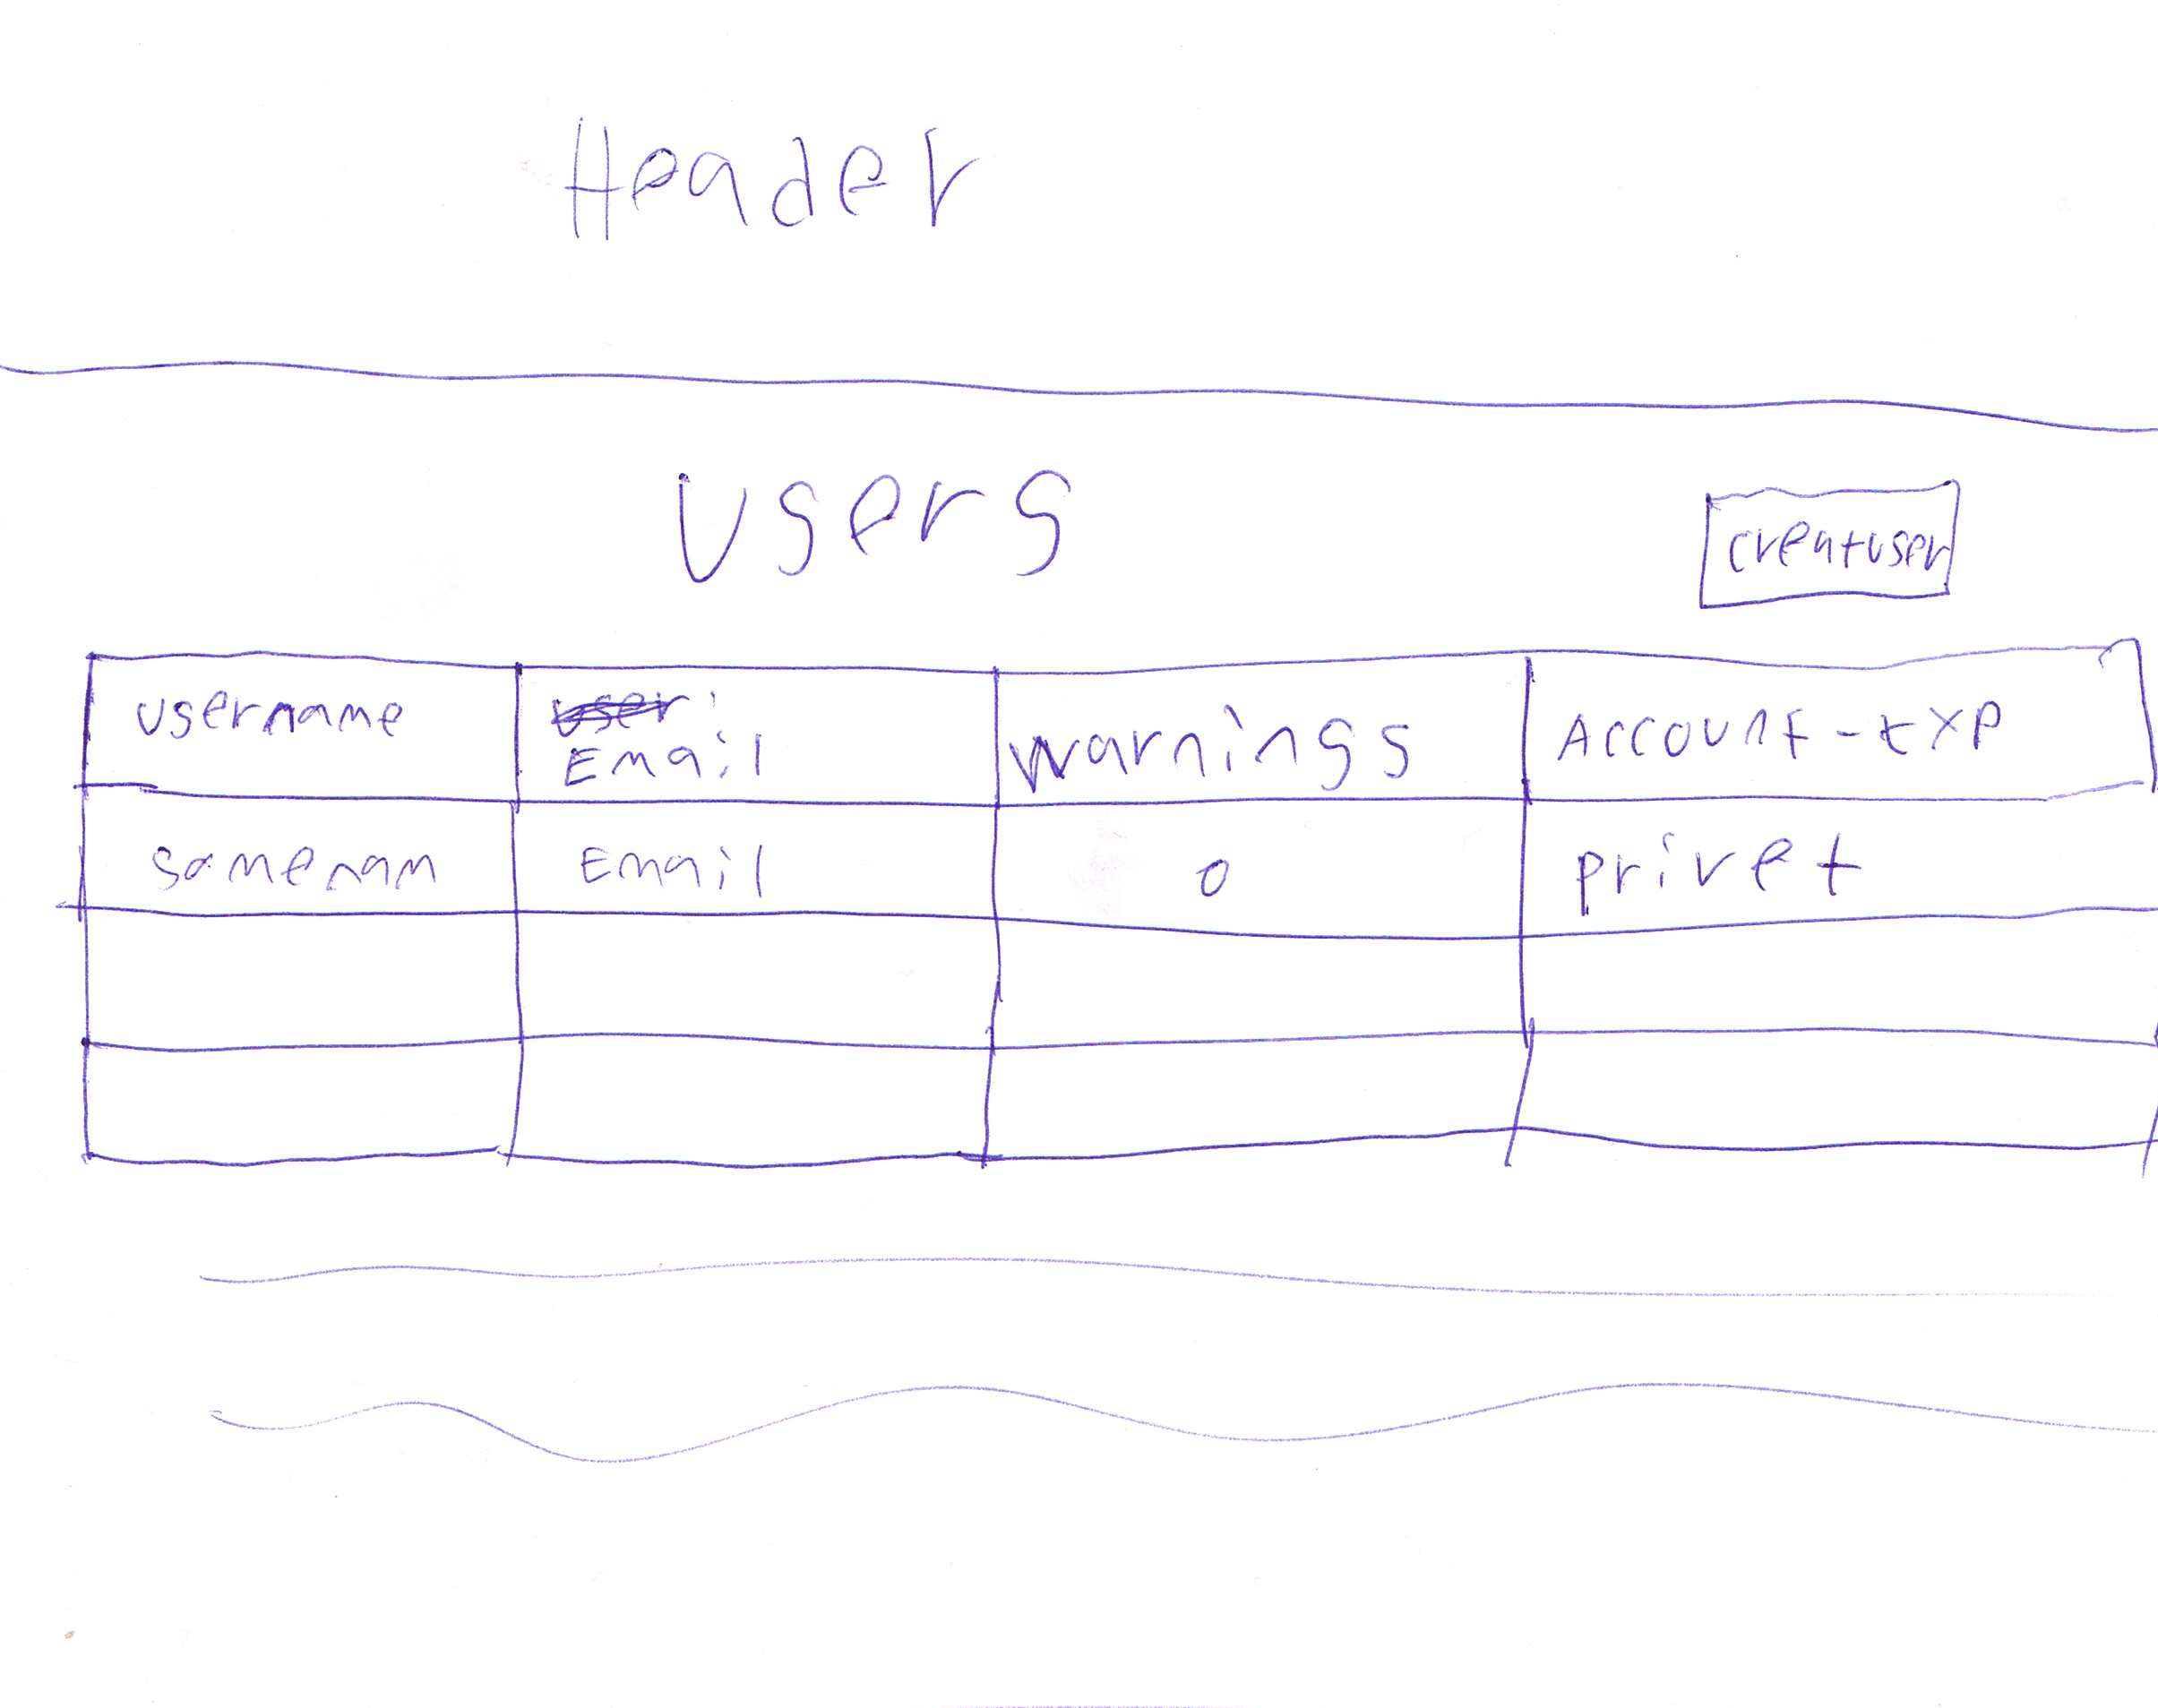 Header
Users
creatuser
username
user
Email
warnings
Account-exp
somenam
Email
0
privet